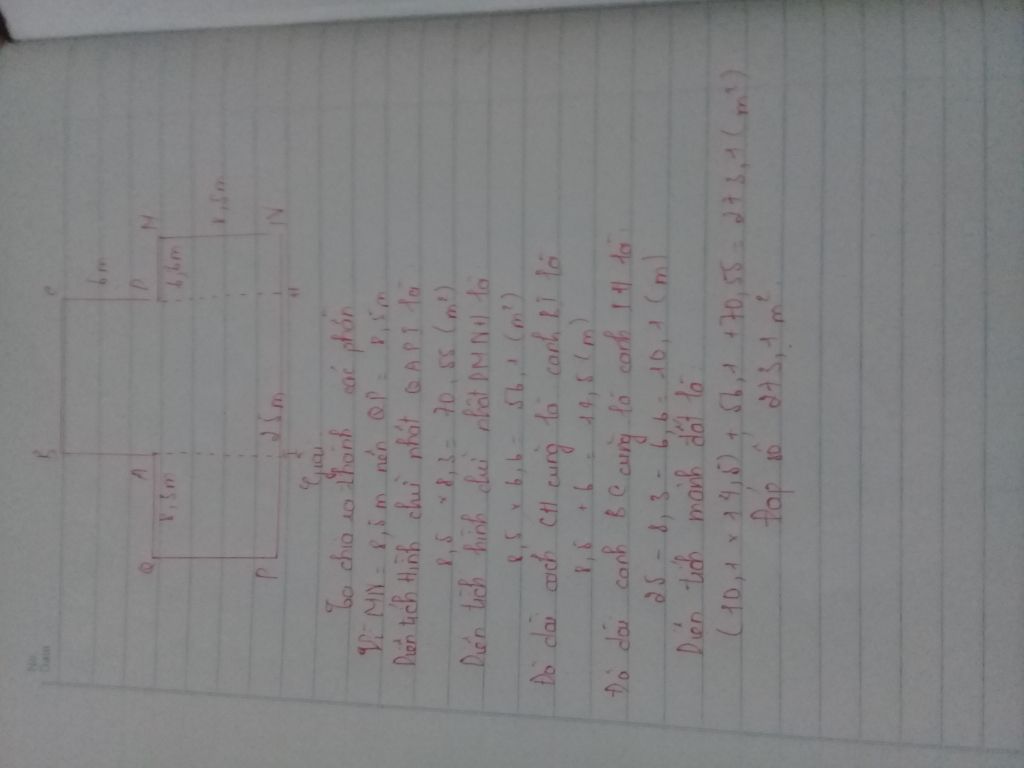 B
C
6m
Q
8,3m
A
D
M
6,6m
8,5m
P
I
25m
H
N
Giải
Ta chia ra thành các phần
Vì MN = 8,5m nên QP = 8,5m
Diện tích Hình chữ nhật QAPI là
8,5 × 8,3 = 70,55 (m²)
Diện tích hình chữ nhật DMNH là
8,5 × 6,6 = 56,1 (m²)
Độ dài cạnh CH cũng là cạnh BI là
8,5 + 6 = 14,5 (m)
Độ dài cạnh BC cũng là cạnh IH là
25 - 8,3 - 6,6 = 10,1 (m)
Diện tích mảnh đất là
(10,1 × 14,5) + 56,1 + 70,55 = 273,1 (m²)
Đáp số 273,1 m²